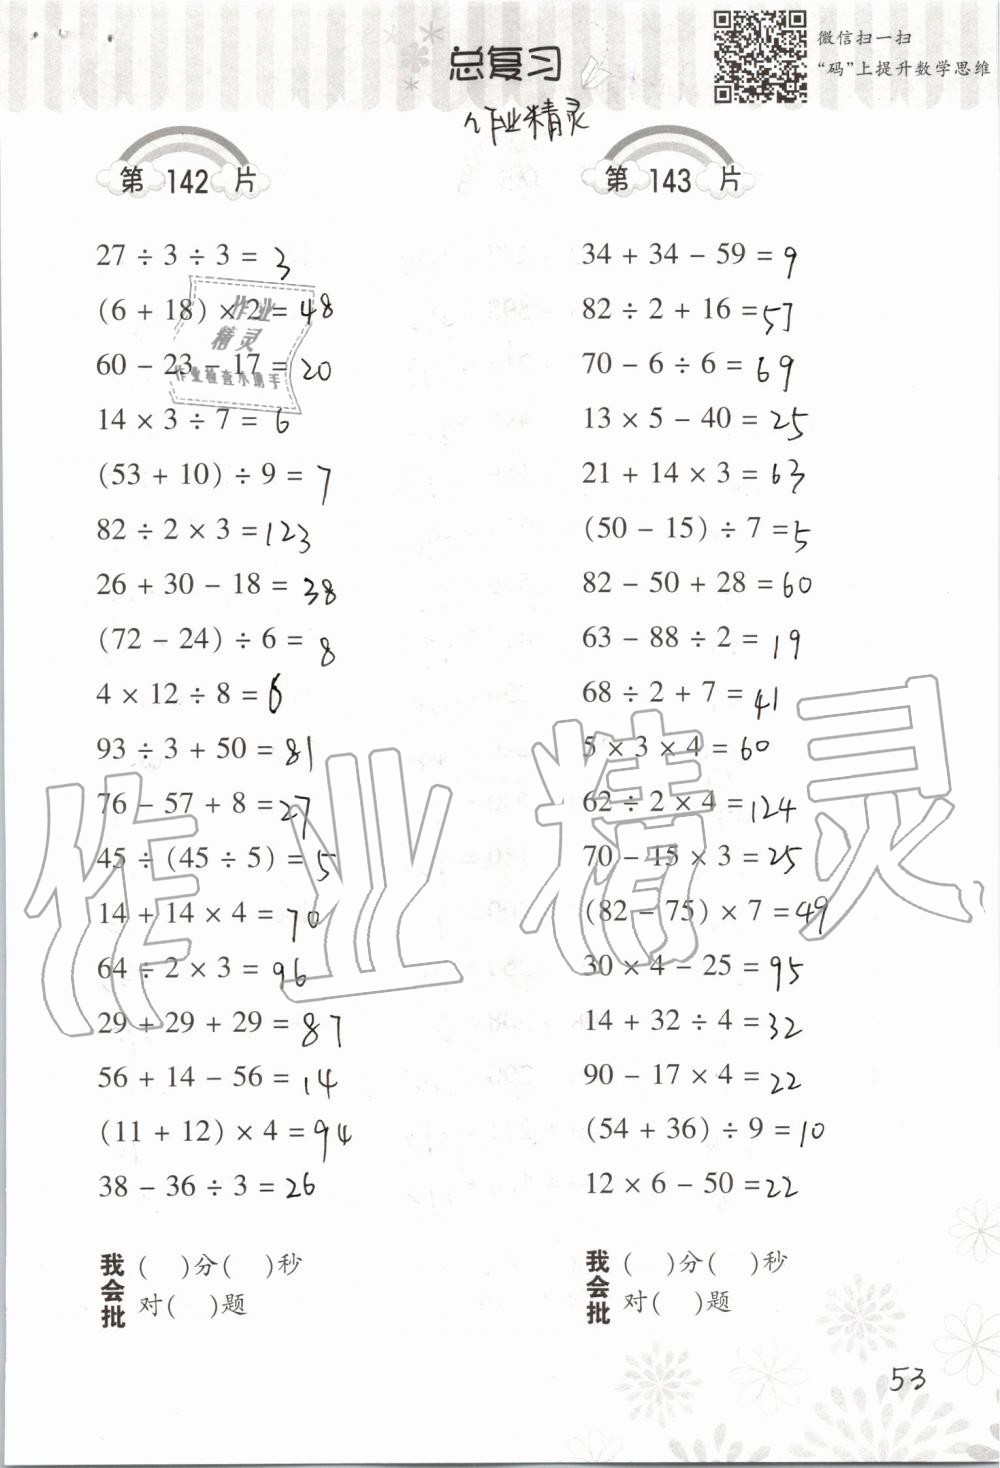 总复习
微信扫一扫
“码”上提升数学思维
作业精灵
第 142 片
27 ÷ 3 ÷ 3 = 3
(6 + 18) × 2 = 48
60 - 23 - 17 = 20
14 × 3 ÷ 7 = 6
(53 + 10) ÷ 9 = 7
82 ÷ 2 × 3 = 123
26 + 30 - 18 = 38
(72 - 24) ÷ 6 = 8
4 × 12 ÷ 8 = 6
93 ÷ 3 + 50 = 81
76 - 57 + 8 = 27
45 ÷ (45 ÷ 5) = 5
14 + 14 × 4 = 70
64 ÷ 2 × 3 = 96
29 + 29 + 29 = 87
56 + 14 - 56 = 14
(11 + 12) × 4 = 94
38 - 36 ÷ 3 = 26
我会批
(    )分(    )秒
对(    )题
第 143 片
34 + 34 - 59 = 9
82 ÷ 2 + 16 = 57
70 - 6 ÷ 6 = 69
13 × 5 - 40 = 25
21 + 14 × 3 = 63
(50 - 15) ÷ 7 = 5
82 - 50 + 28 = 60
63 - 88 ÷ 2 = 19
68 ÷ 2 + 7 = 41
5 × 3 × 4 = 60
62 ÷ 2 × 4 = 124
70 - 15 × 3 = 25
(82 - 75) × 7 = 49
30 × 4 - 25 = 95
14 + 32 ÷ 4 = 32
90 - 17 × 4 = 22
(54 + 36) ÷ 9 = 10
12 × 6 - 50 = 22
我会批
(    )分(    )秒
对(    )题
作业
精灵
作业检查小助手
作业精灵
53